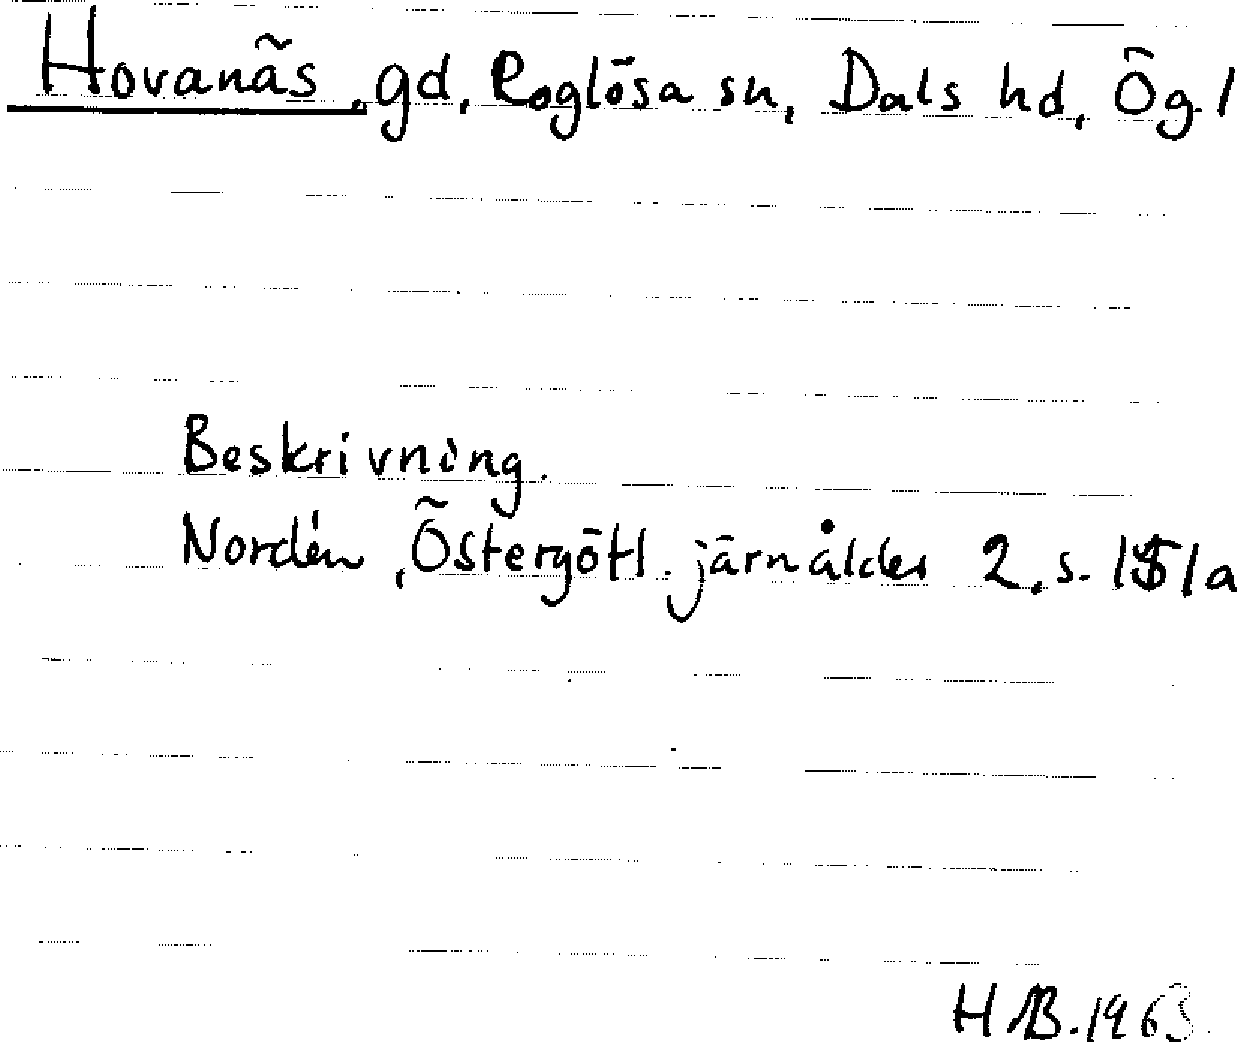 Hovanäs, gd, Roglösa sn, Dals hd, Ög.l
Beskrivning.
Nordén, Östergötl. järnålder 2, s. 151a
HB. 1963.